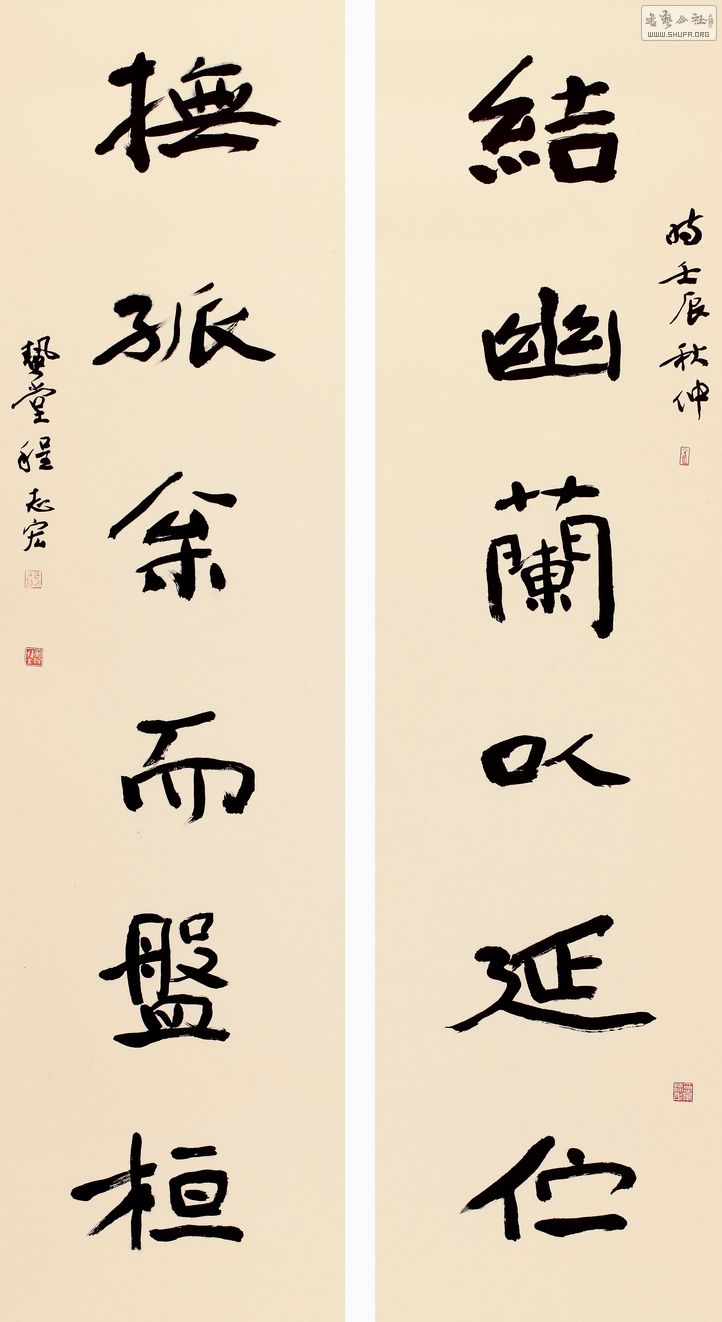 時壬辰秋仲
結幽蘭㕥延伫
撫孤枀而盤桓
蟄堂程志宏
書藝公社
WWW.SHUFA.ORG